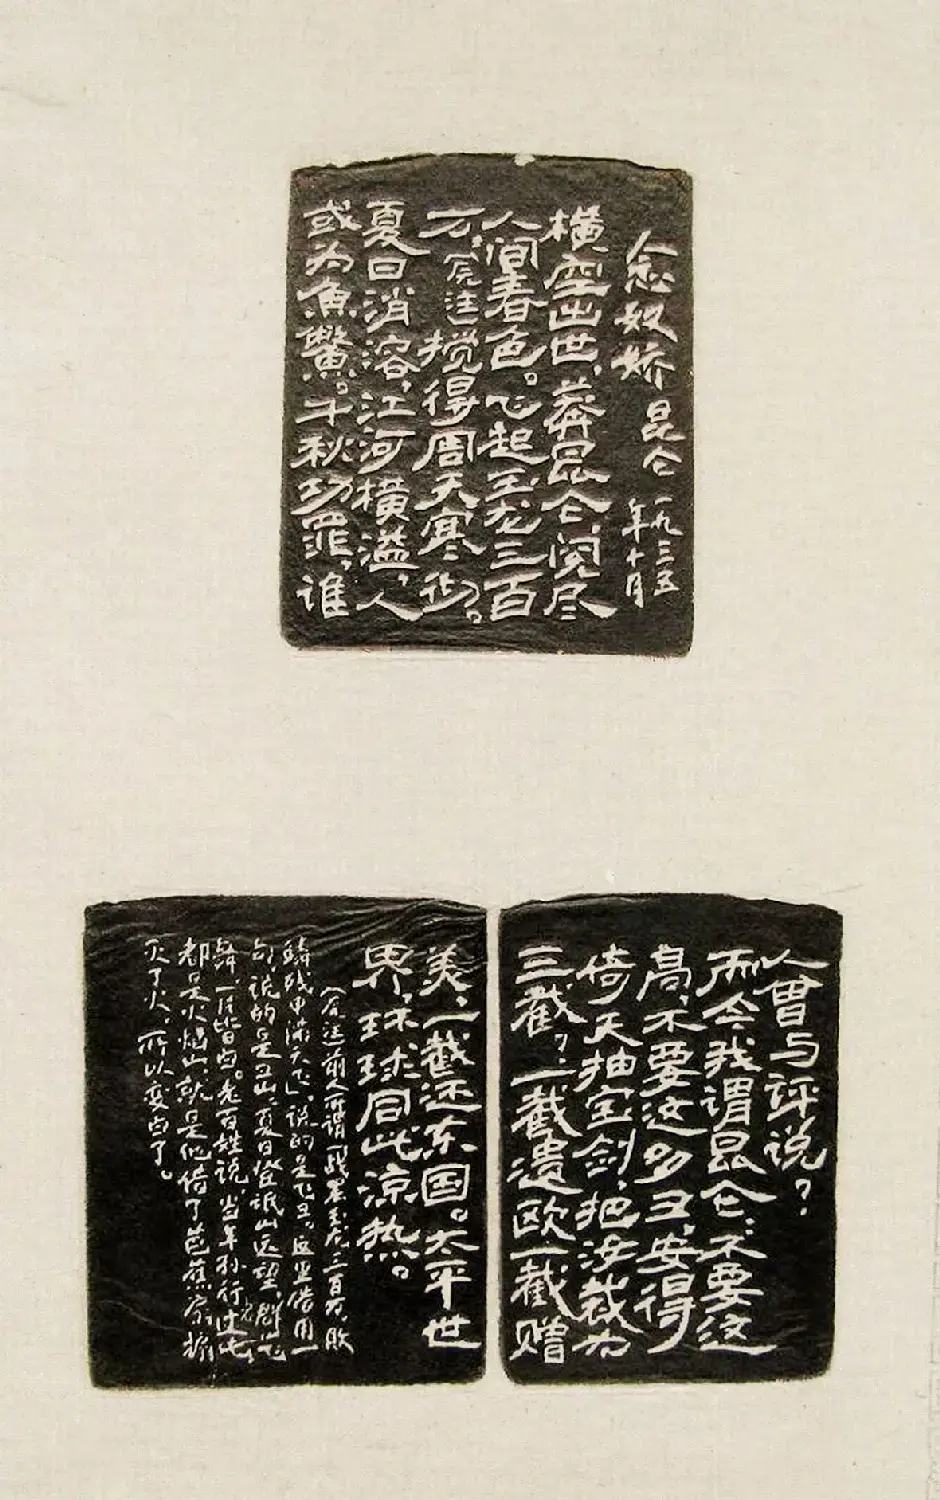 念奴娇 昆仑 一九三五
年十月
横空出世,莽昆仑,阅尽
人间春色。飞起玉龙三百
万,原注搅得周天寒彻。
夏日消溶,江河横溢,人
或为鱼鳖。千秋功罪,谁
人曾与评说?
而今我谓昆仑:不要这
高,不要这多雪,安得
倚天抽宝剑,把汝裁为
三截?一截遗欧一截赠
美,一截还东国。太平世
界,环球同此凉热。
(原注前人所谓战罢玉龙三百万,败
鳞残甲满天飞」,说的是飞雪。这里借用一
句,说的是雪山。夏日登岷山远望,群山飞
舞,一片皆白。老百姓说,当年孙行者过此,
都是火焰山,就是他借了芭蕉扇扇
灭了火,所以变白了。